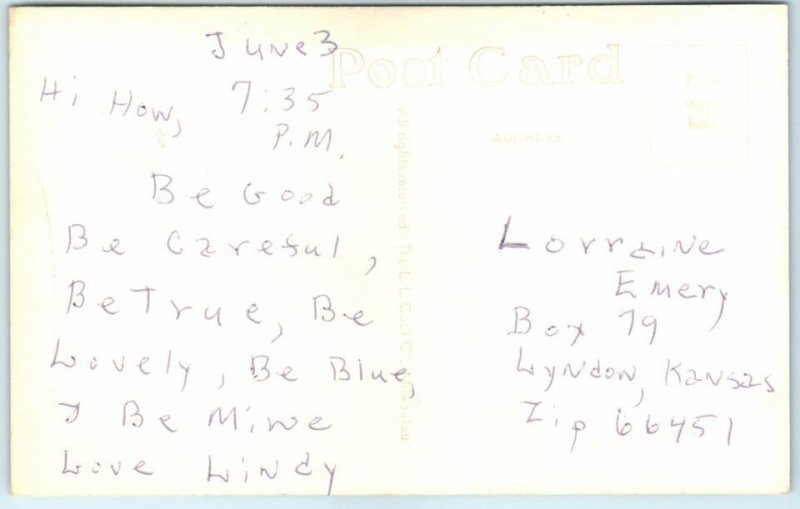 June 3
Hi How, 7:35
P.M.
Be Good
Be Careful,
Be True, Be
Lovely, Be Blue,
& Be Mine
Love Lindy
Post Card
Place
stamp
here
ADDRESS
All rights reserved - The L. L. Cook Co., Milwaukee
Lorraine
Emery
Box 79
Lyndon, Kansas
Zip 66451